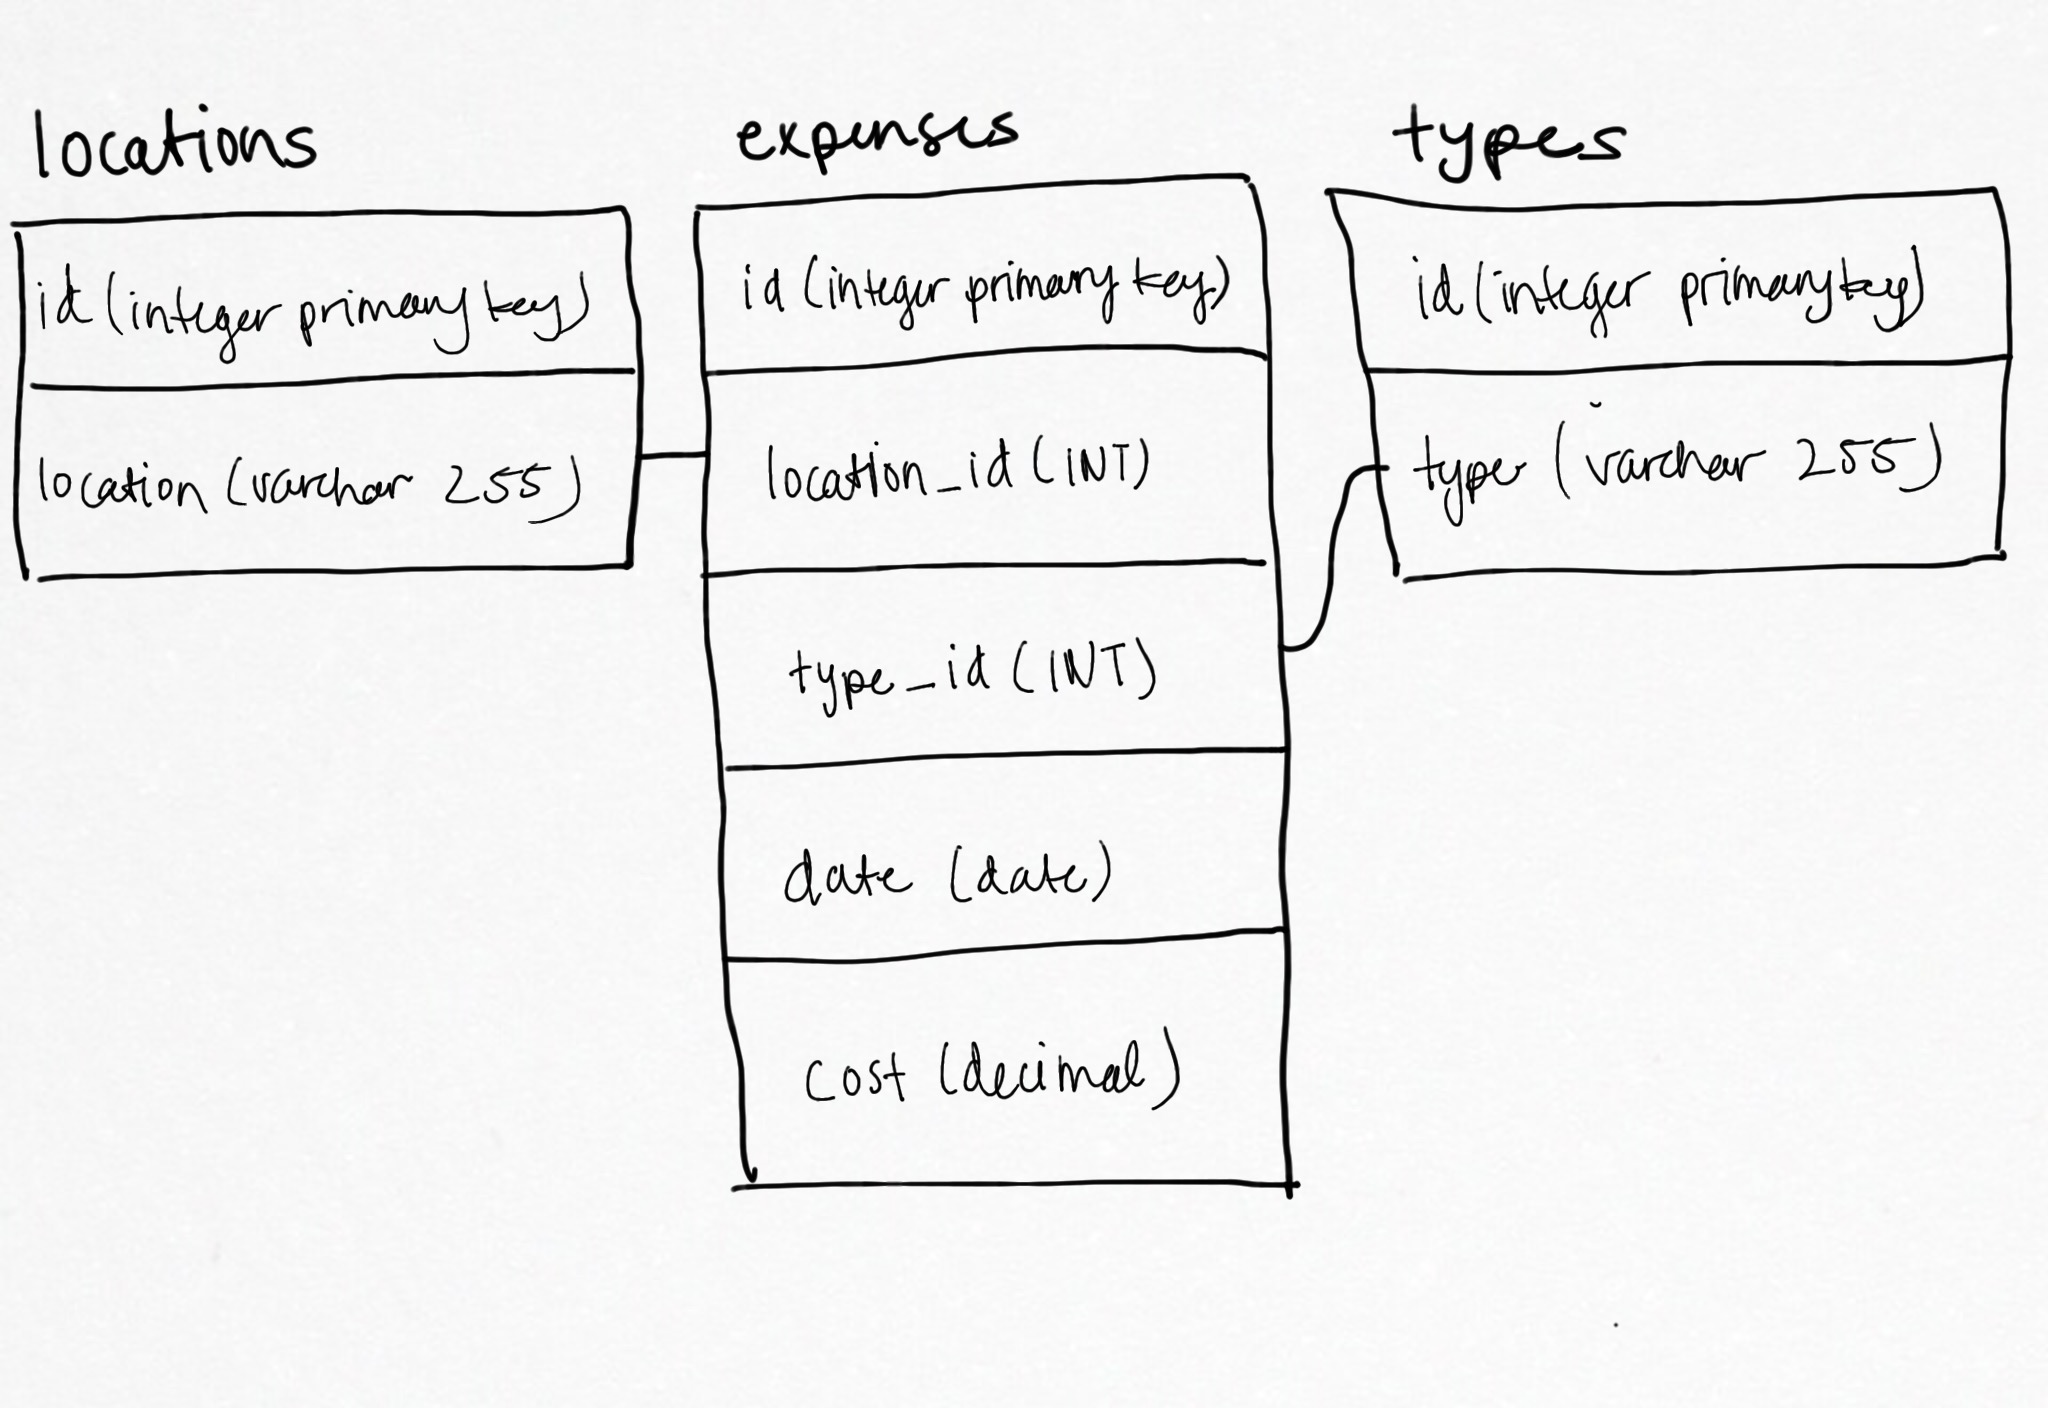 locations
id (integer primary key)
location (varchar 255)
expenses
id (integer primary key)
location_id (INT)
type_id (INT)
date (date)
cost (decimal)
types
id (integer primary key)
type (varchar 255)